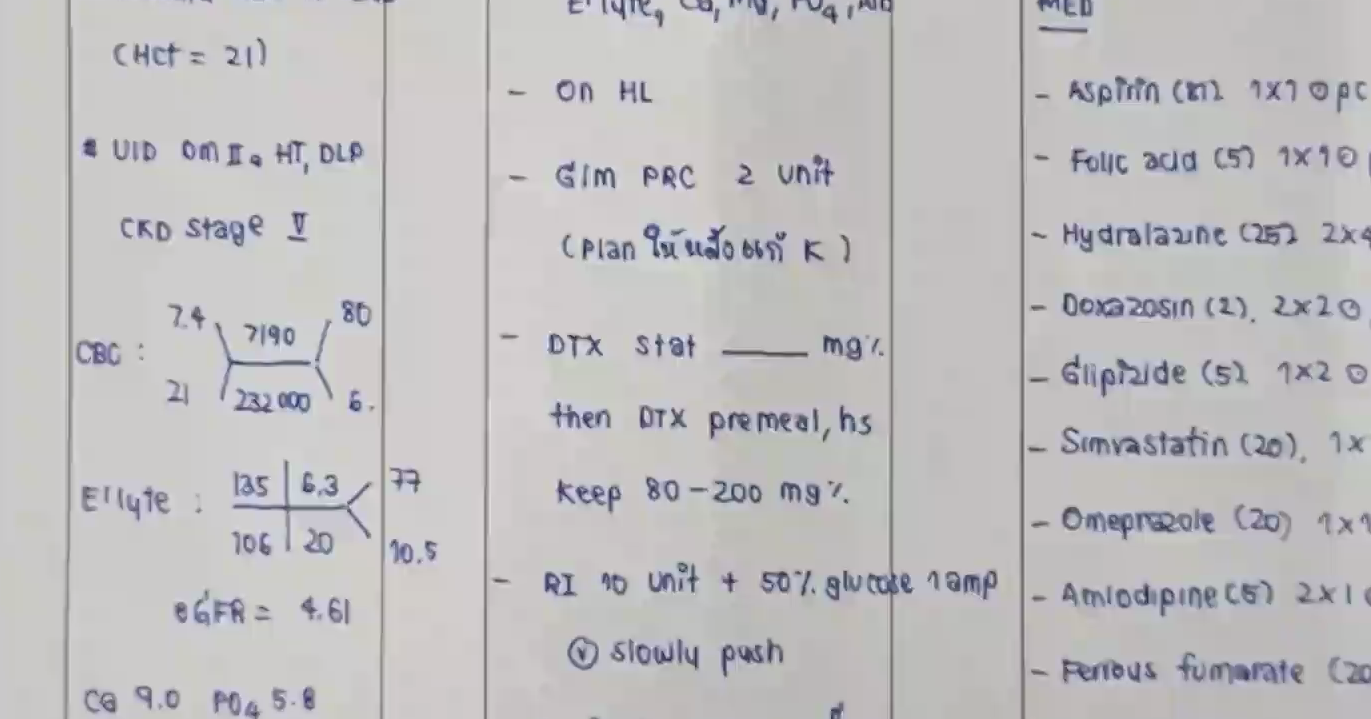 (Hct = 21)
U/D DM II, HT, DLP
CKD stage V
CBC : 7.4 7190 80
21 232000 6.
E'lyte : 135 6.3 77
106 20 10.5
eGFR = 4.61
Ca 9.0 PO4 5.8
E'lyte, Ca, Mg, PO4,
- On HL
- G/m PRC 2 unit
(Plan ให้หลังแก้ K)
- DTX stat ____ mg%
then DTX premeal, hs
keep 80-200 mg%
- RI 10 unit + 50% glucose 1 amp
Ⓥ slowly push
MED
- Aspirin (81) 1x1 ⊙ pc
- Folic acid (5) 1x1 ⊙
- Hydralazine (25) 2x4
- Doxazosin (2) 2x2 ⊙
- Glipizide (5) 1x2 ⊙
- Simvastatin (20) 1x
- Omeprazole (20) 1x1
- Amlodipine (5) 2x1
- Ferrous fumarate (20